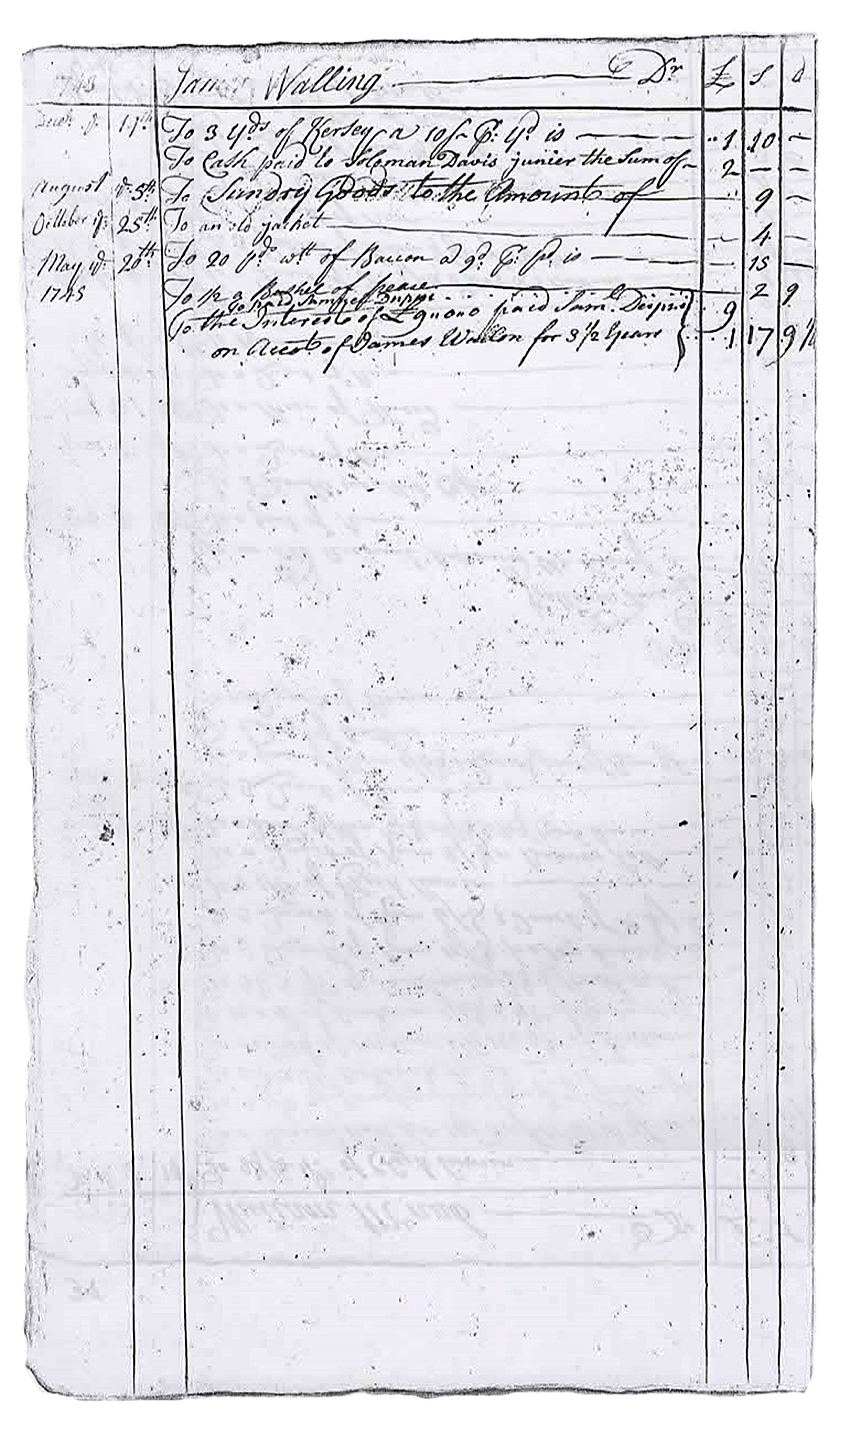 1743 James Walling Dr £ s d
Decbr ye 17th To 3 yds of Kersey a 10s pr yd is 1 10 —
To Cash paid to Soloman Davis junier the Sum of 2 — —
August ye 5th To Sundry Goods to the Amount of 9 —
October ye 25th To an old jacket 4 —
May ye 20th To 20 pd wtt of Bacon a 9d pr pd is 15 —
1745 To 1/2 a Bushel of pease 2 9
To Paid Samuel 9
To the Interest of £9 0 0 paid Saml
on Acct of James Wallon for 3 1/2 years 1 17 9 1/2